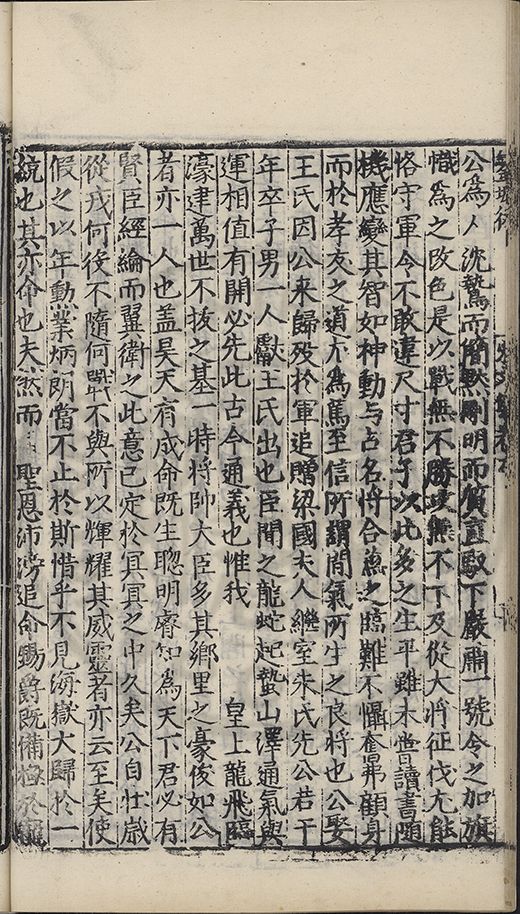 公為人沈鷙而簡黙剛明而質直馭下嚴肅一號令之加旗
幟為之改色是以戰無不勝攻無不下及從大將征伐尤能
恪守軍令不敢違尺寸君子以此多之生平雖未嘗讀書随
機應變其智如神動与古名將合焉之臨難不懾奮昴顧身
而於孝友之道亦為篤至信所謂間氣所生之良將也公娶
王氏因公来歸殁於軍追贈梁國夫人繼室朱氏先公若干
年卒子男一人獻王氏出也臣聞之龍蛇起蟄山澤通氣與
運相值有開必先此古今通義也惟我 皇上龍飛臨
濠建萬世不拔之基一時將帥大臣多其鄉里之豪俊如公
者亦一人也盖昊天有成命既生聰明睿知為天下君必有
賢臣經綸而翼衛之此意已定於冥冥之中久矣公自壮歲
從戎何役不随何戰不與所以輝耀其威靈者亦云至矣使
假之以年勳業炳朗當不止於斯惜乎不見海嶽大歸於一
統也其亦命也夫然而 聖恩沛滂追命錫爵既備極於